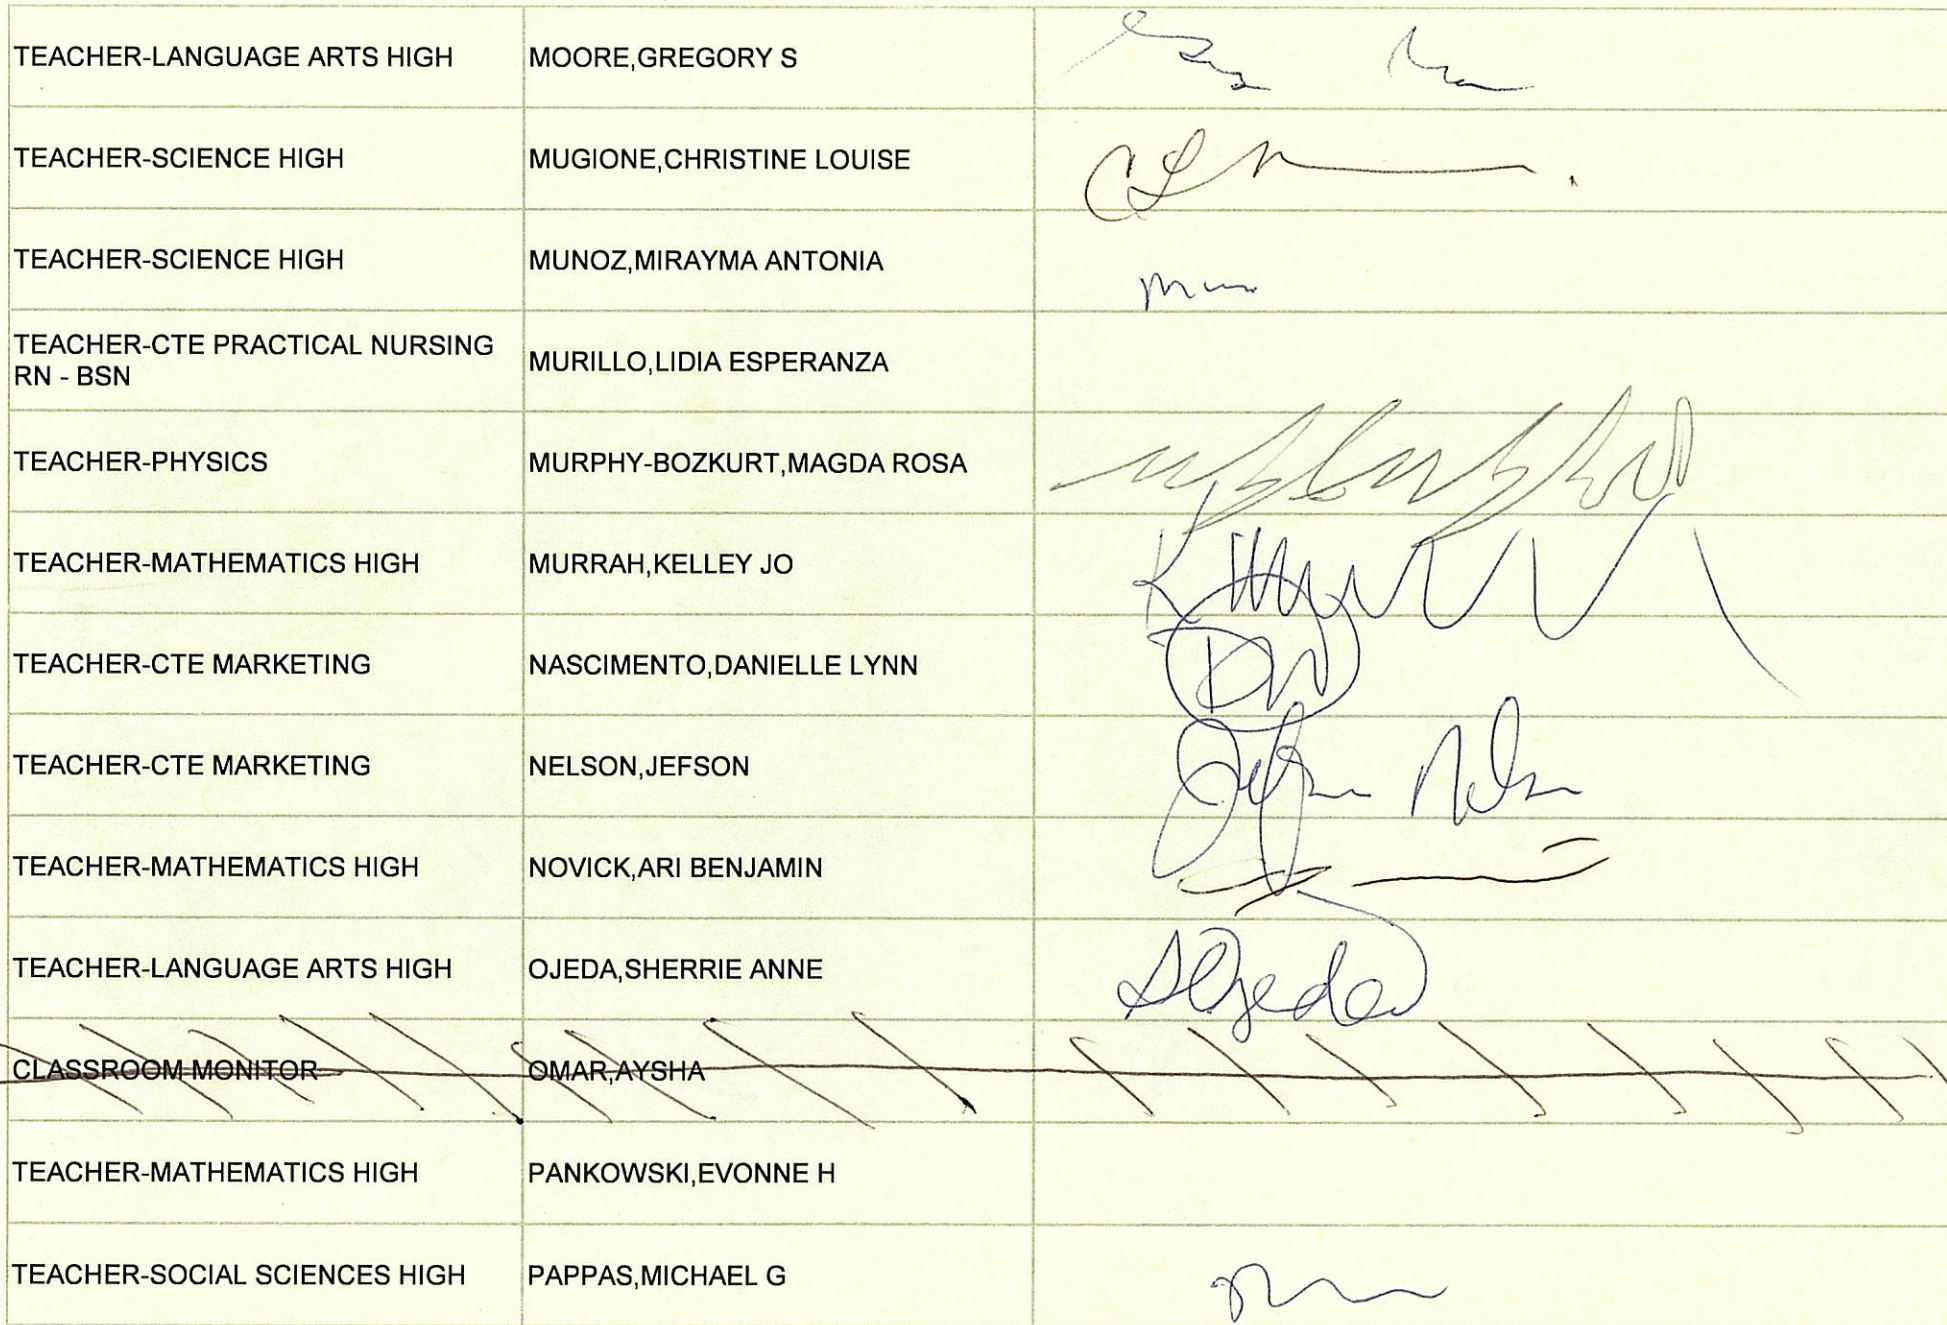 TEACHER-LANGUAGE ARTS HIGH MOORE,GREGORY S
TEACHER-SCIENCE HIGH MUGIONE,CHRISTINE LOUISE
TEACHER-SCIENCE HIGH MUNOZ,MIRAYMA ANTONIA
TEACHER-CTE PRACTICAL NURSING
RN - BSN MURILLO,LIDIA ESPERANZA
TEACHER-PHYSICS MURPHY-BOZKURT,MAGDA ROSA
TEACHER-MATHEMATICS HIGH MURRAH,KELLEY JO
TEACHER-CTE MARKETING NASCIMENTO,DANIELLE LYNN DN
TEACHER-CTE MARKETING NELSON,JEFSON Jefson Nelson
TEACHER-MATHEMATICS HIGH NOVICK,ARI BENJAMIN
TEACHER-LANGUAGE ARTS HIGH OJEDA,SHERRIE ANNE SOjeda
CLASSROOM MONITOR OMAR,AYSHA
TEACHER-MATHEMATICS HIGH PANKOWSKI,EVONNE H
TEACHER-SOCIAL SCIENCES HIGH PAPPAS,MICHAEL G